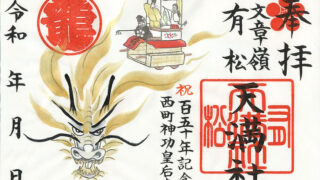 奉拝
文章嶺
有松
天満社
祝
百五十年記念
西町神功皇后
龍
令和 年 月 日